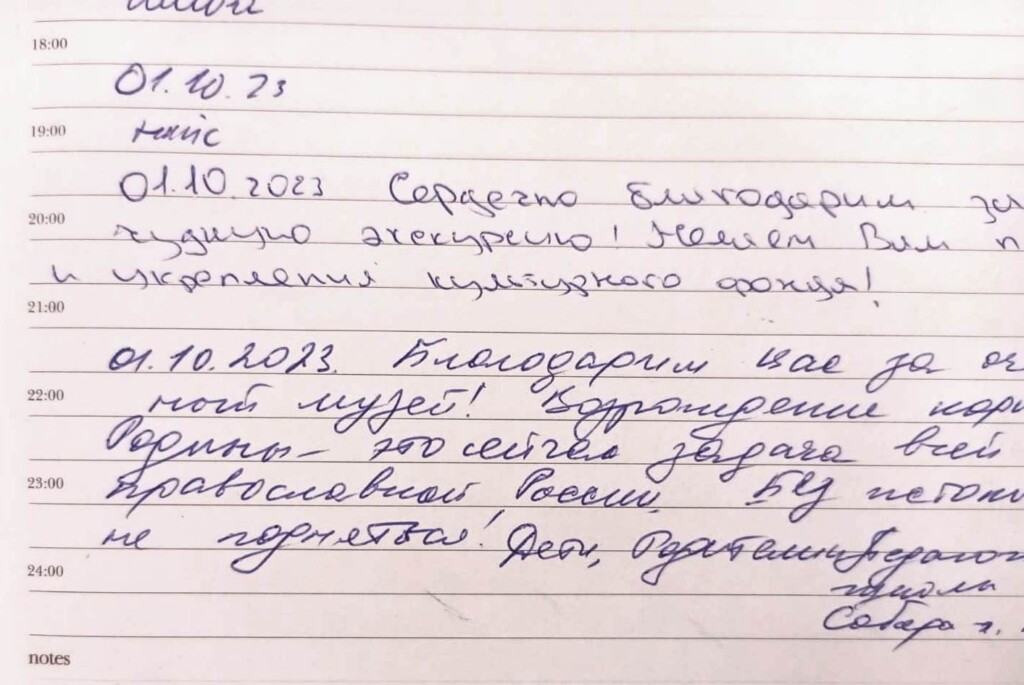 18:00
01.10.23
19:00
найс
01.10.2023 Сердечно благодарим за
20:00
чудную экскурсию! Желаем Вам п
и укрепления культурного фонда!
21:00
01.10.2023. Благодарим вас за
22:00
ной музей! Возрождение
Родины – это сейчас задача всей
23:00
православной России. Без
не подняться! Дети, Родители и Педагог
24:00
школы
Собора г.
notes